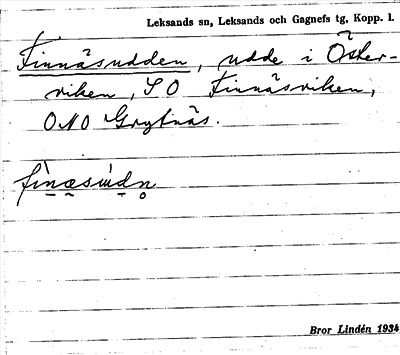 Leksands sn, Leksands och Gagnefs tg, Kopp. l.
Finnäsudden, udde i Öster-
viken, SO Finnäsviken,
ONO Grytnäs.
fìnæsùdn̥
Bror Lindén 1934